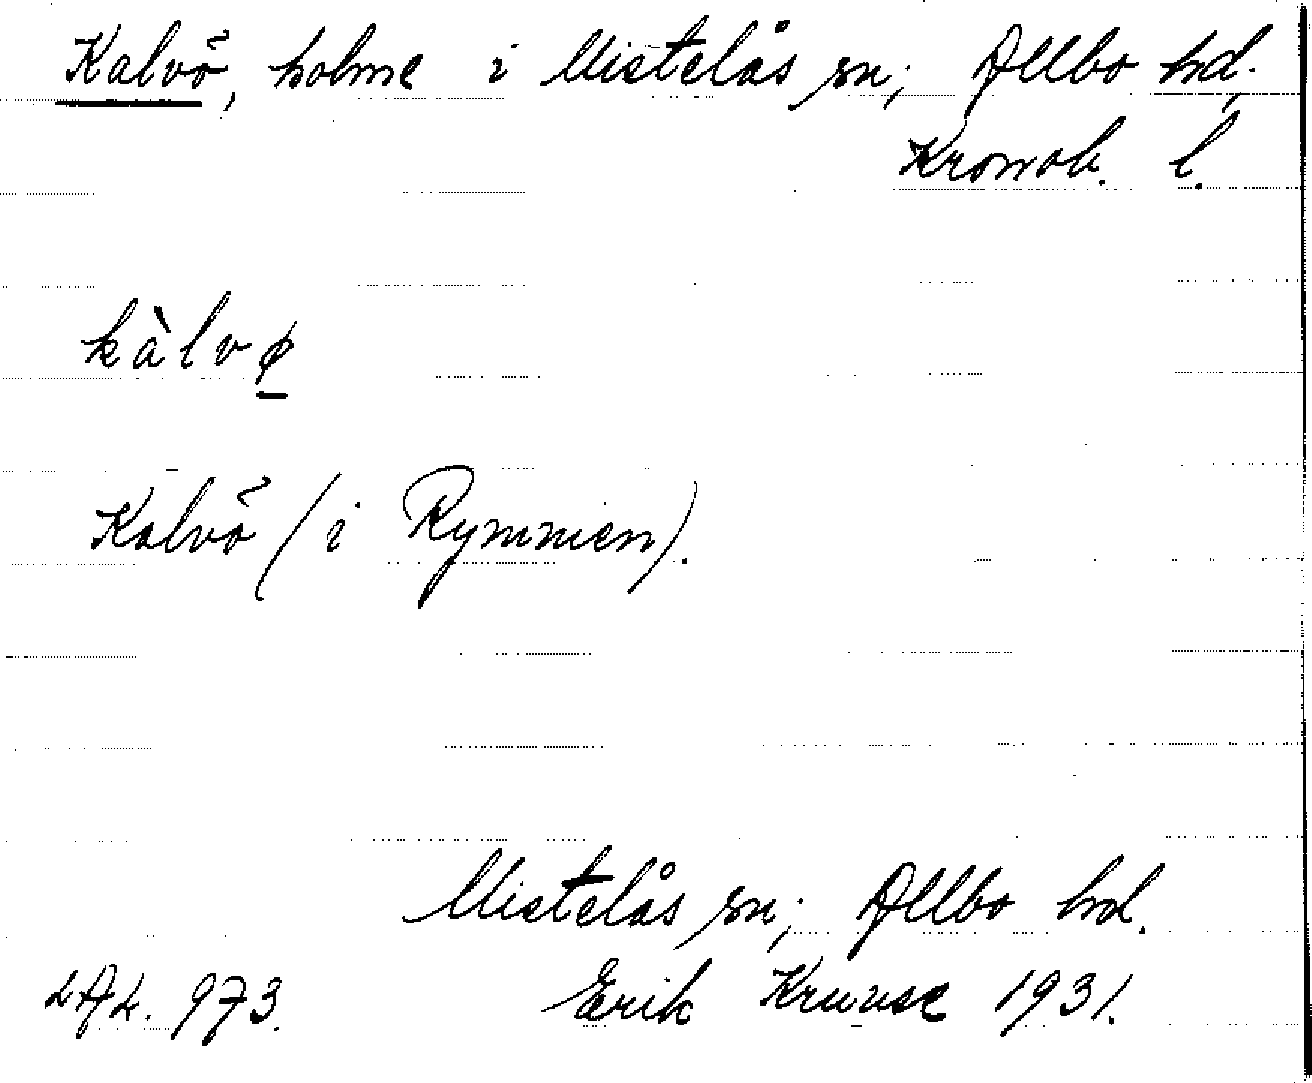 Kalvö, holme i Mistelås sn; Allbo hd,
Kronob. l.
kàlvø
Kalvö (i Rymmen).
Mistelås sn; Allbo hd.
LAL. 973. Erik Kruuse 1931.